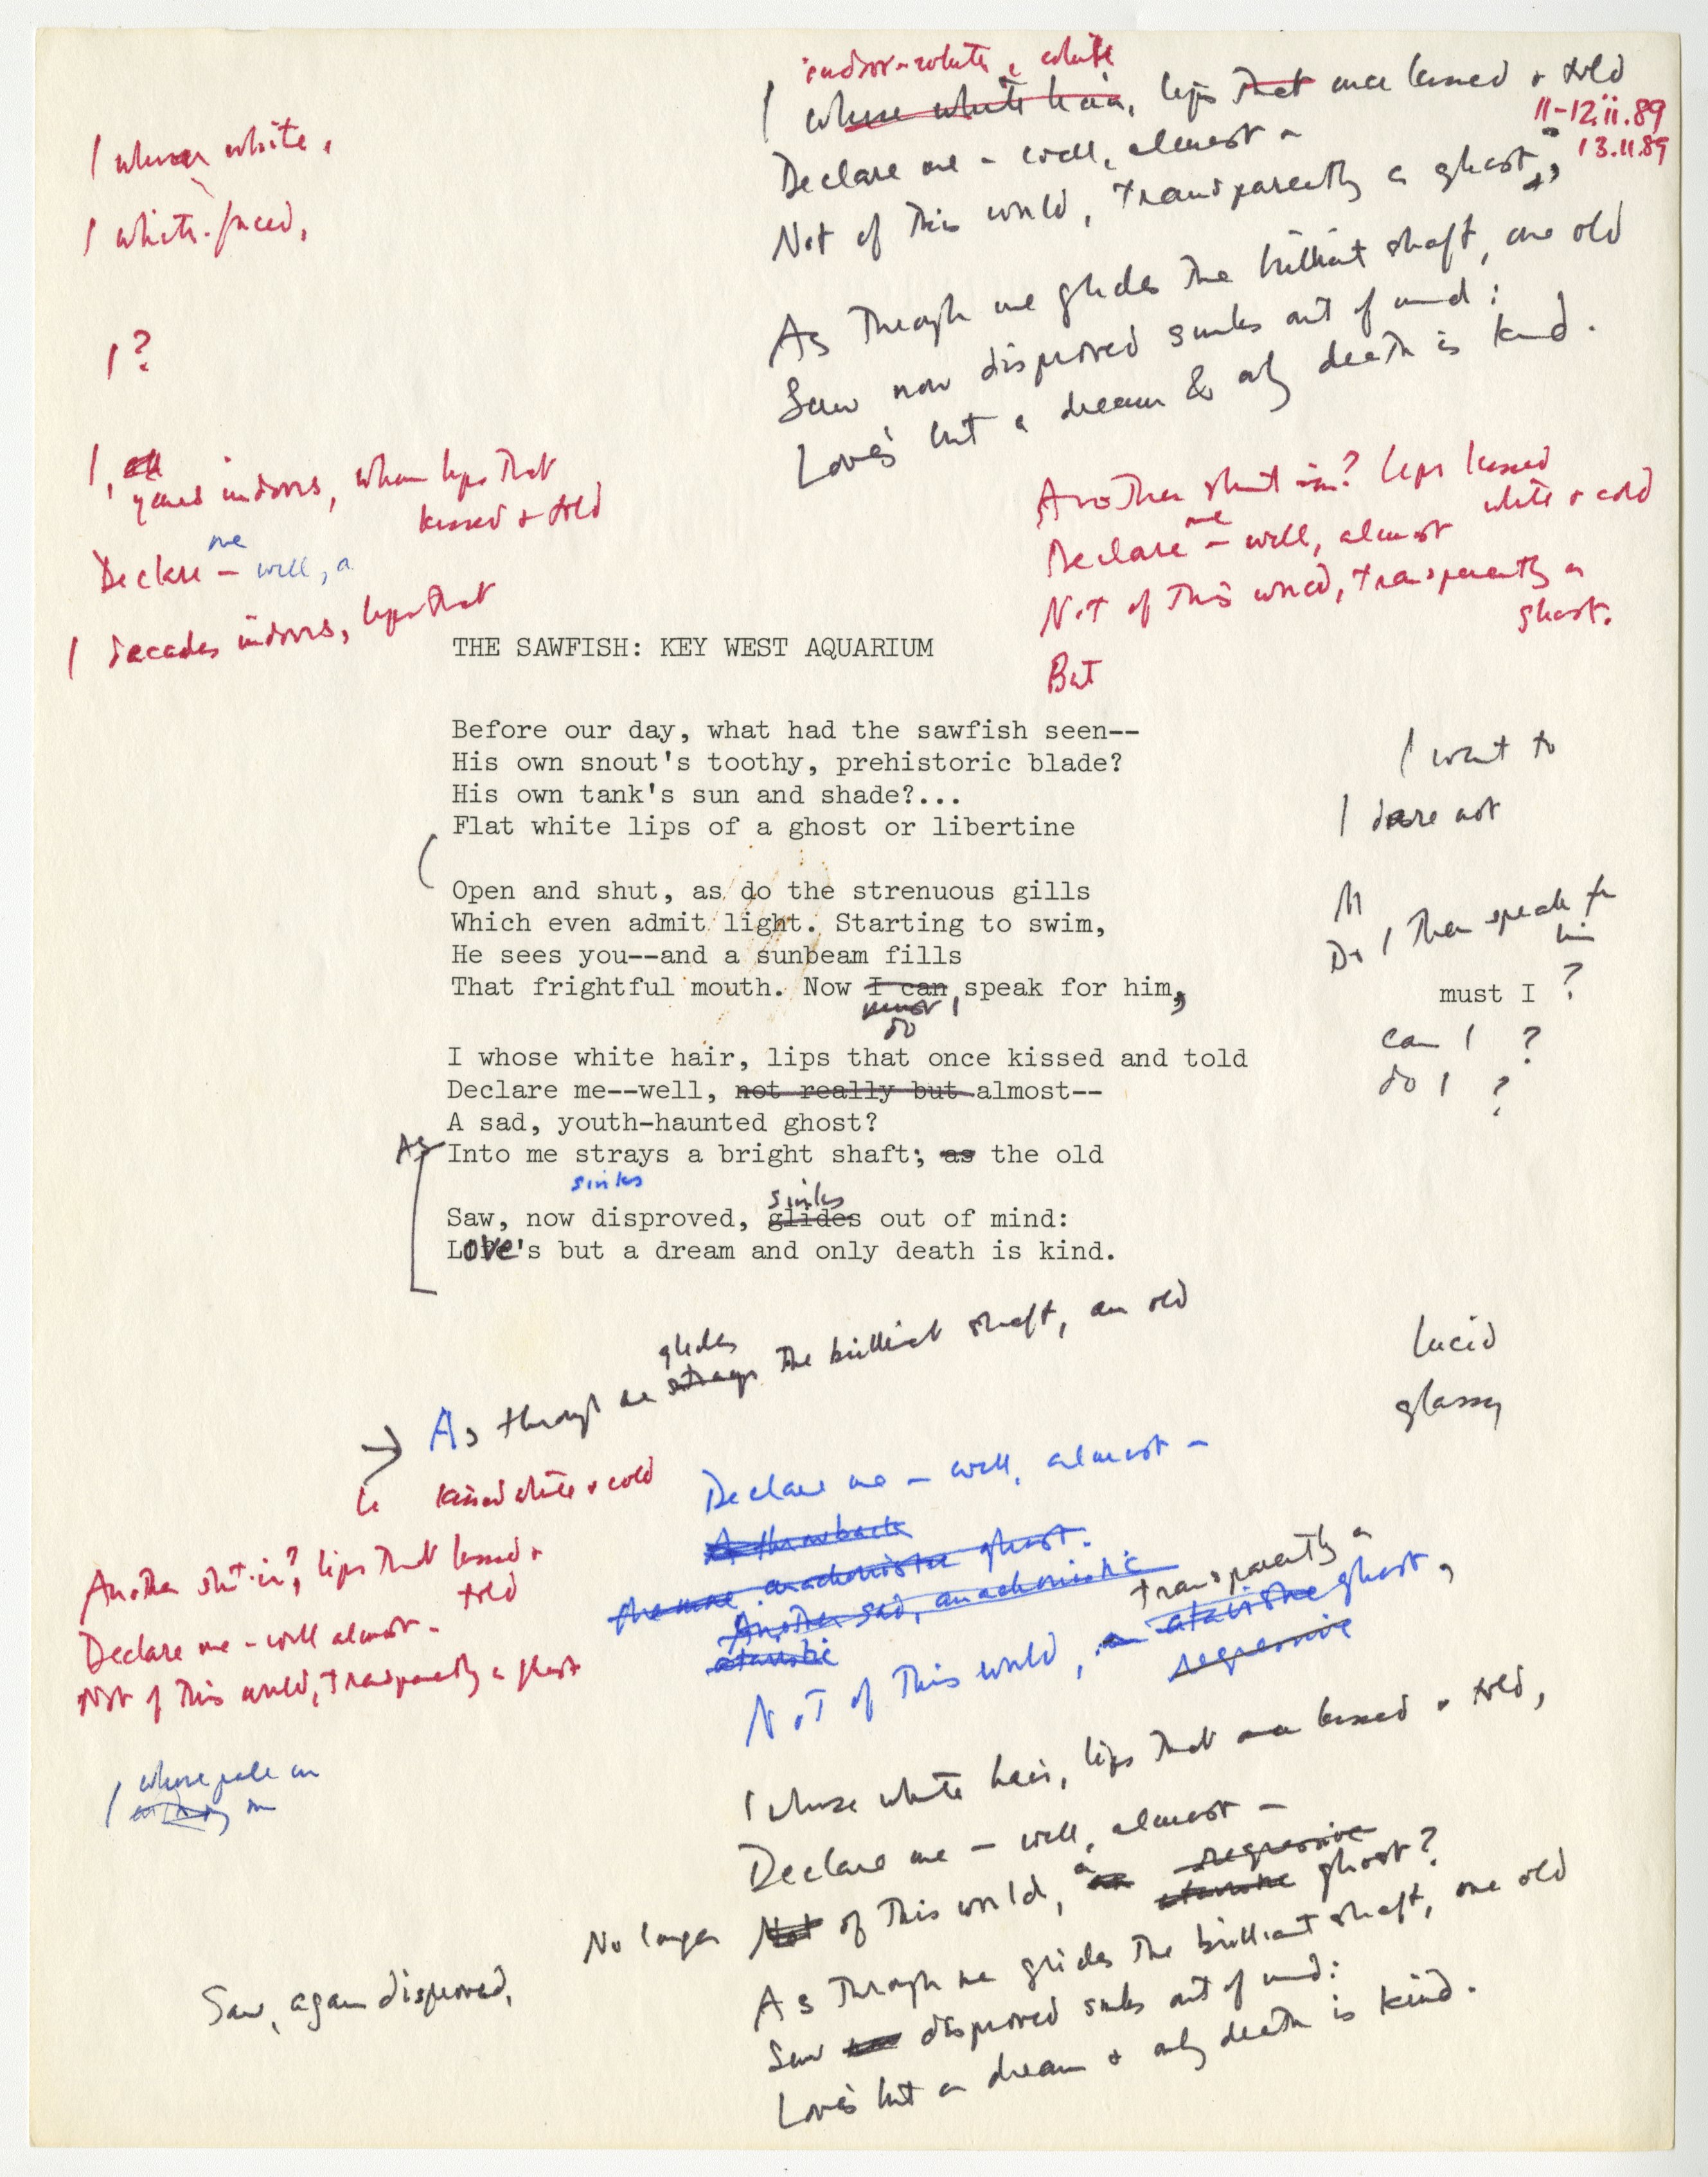 indoor-white, white
I whose white hair, lips that once kissed & told
11-12.ii.89
13.ii.89
Declare me – well, almost –
Not of this world, transparently a ghost,
As through me glides the brilliant shaft, one old
Saw now disproved sinks out of mind:
Love's but a dream & only death is kind.
I whose white,
I white-faced,
I?
I, years indoors, whom lips that
kissed & told
me
Declare – well, a
I decades indoors, lips that
Another shut-in? Lips kissed
white & cold
me
Declare – well, almost
Not of this world, transparently a
ghost.
But
THE SAWFISH: KEY WEST AQUARIUM
Before our day, what had the sawfish seen--
His own snout's toothy, prehistoric blade?
His own tank's sun and shade?...
Flat white lips of a ghost or libertine
I want to
I dare not
Open and shut, as do the strenuous gills
Which even admit light. Starting to swim,
He sees you--and a sunbeam fills
That frightful mouth. Now I can speak for him,
must I
do
M
Do I then speak for
him
must I ?
can I ?
do I ?
I whose white hair, lips that once kissed and told
Declare me--well, not really but almost--
A sad, youth-haunted ghost?
As
Into me strays a bright shaft; as the old
sinks
sinks
Saw, now disproved, glides out of mind:
Love's but a dream and only death is kind.
glides
As through me strays the brilliant shaft, an old
lucid
glassy
kissed white & cold
Another shut-in?, lips that kissed &
told
Declare me – well almost –
Not of this world, transparently a ghost
Declare me – well, almost –
A throwback
anachronistic ghost.
Another sad, anachronistic
atavistic
transparently a
Not of this world, an atavistic ghost,
regressive
whose pale
I
I whose white hair, lips that once kissed & told,
Declare me – well, almost –
a regressive
No longer Not of this world, an atavistic ghost?
As through me glides the brilliant shaft, one old
Saw, again disproved,
Saw now disproved sinks out of mind:
Love's but a dream & only death is kind.